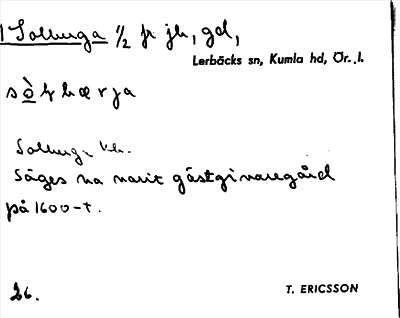 1 Solberga 1/2 fr jh, gd,
Lerbäcks sn, Kumla hd, Ör. l.
Solberga kb.
Säges ha varit gästgivaregård
på 1600-t.
26.
T. ERICSSON